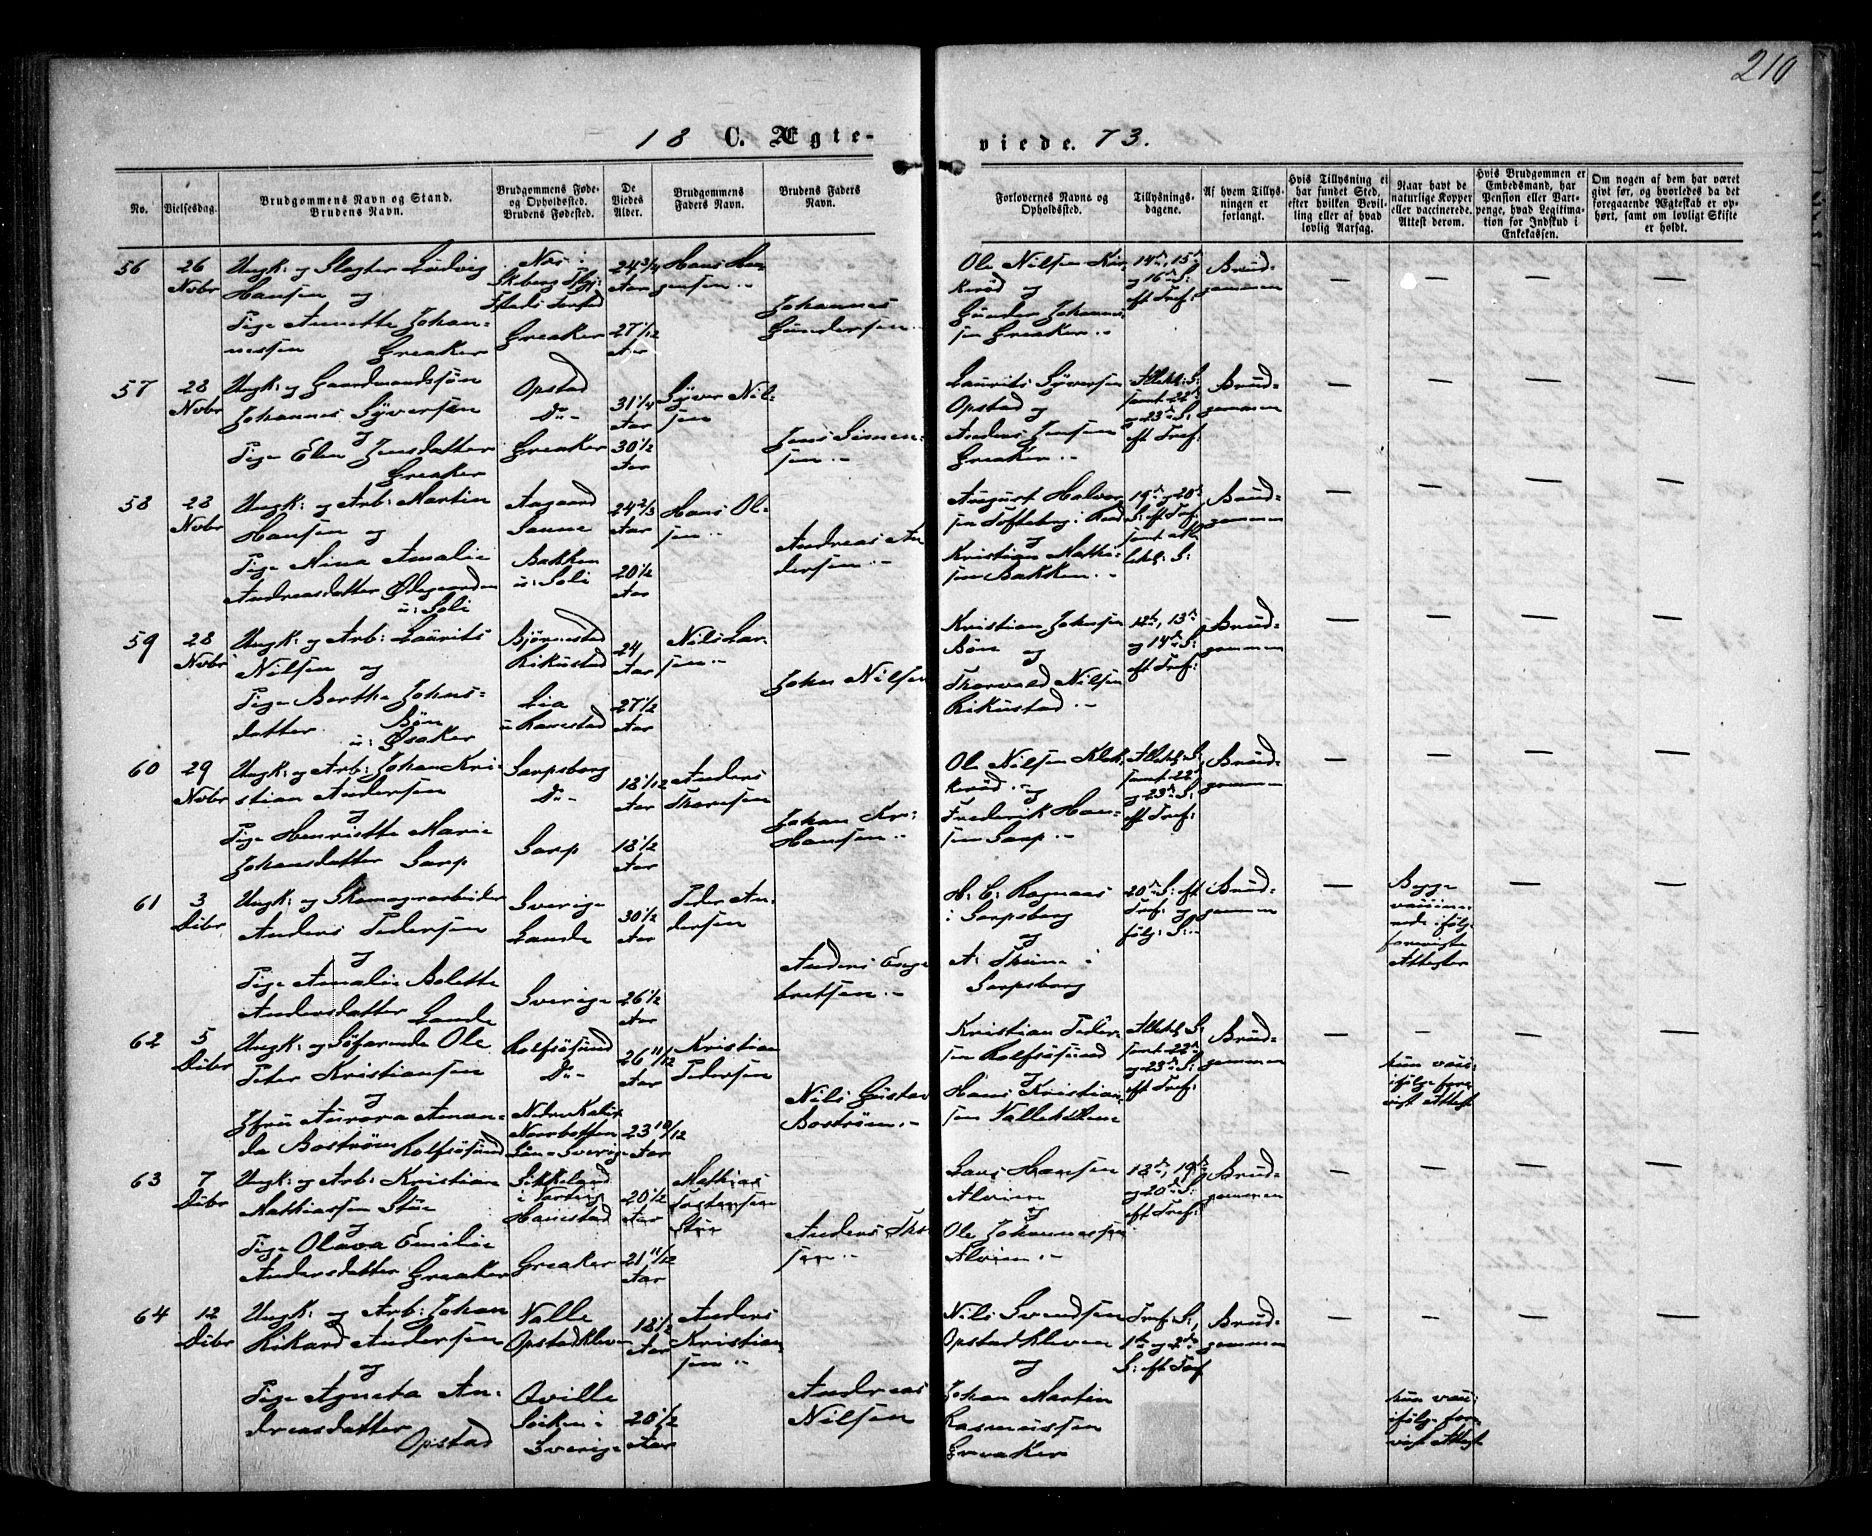 210
18 C. Ægte-
viede. 73.
No.
Vielsesdag.
Brudgommens Navn og Stand.
Brudens Navn.
Brudgommens Føde-
og Opholdssted.
Brudens Fødested.
De
Viedes
Alder.
Brudgommens
Faders Navn.
Brudens Faders
Navn.
Forlovernes Navne og
Opholdssted.
Tillysnings-
dagene.
Af hvem Tillys-
ningen er
forlangt.
Hvis Tillysning ei
har fundet Sted,
efter hvilken Bevil-
ling eller af hvad
lovlig Aarsag.
Naar havt de
naturlige Kopper
eller vaccinerede.
Attest derom.
Hvis Brudgommen er
Embedsmand, har
Pension eller Vart-
penge, hvad Legitima-
tion for Indskud i
Enkekassen.
Om nogen af dem har været
gift før, og hvorledes da det
foregaaende Ægteskab er op-
hørt, samt om lovligt Skifte
er holdt.
56
26
Novbr
Ungk: og Slagter Ludvig
Hansen og
Pige Annette Johan-
nessen Greaker
Greaker
24 3/4
Aar
27 1/12
Aar
Johannes
Gundersen
Ole Nilsen
og
Gunder Johannes-
sen Greaker
14de, 15de
og 16de S:
eft Tref:
Brud-
gommen
57
28
Novbr
Ungk: og Gaardmandssøn
Johannes Syversen
og
Pige Elen Jensdatter
Greaker
Opstad
Do
Greaker
31 1/4
Aar
30 1/2
Aar
Syver Nil-
sen
Jens Simen-
sen
Laurits Syversen
Opstad og
Anders Jensen
Greaker
Allehl: S:
samt 22de
og 23de S:
eft Tref:
Brud-
gommen
58
28
Novbr
Ungk: og Arb: Martin
Hansen og
Pige Mina Amalie
Andreasdatter Ødegaarden
u: Soli
Aagaard
Sanne
Bakken
u: Soli
24 2/3
Aar
20 1/2
Aar
Hans Ol-
sen
Andreas An
dersen
August Halvor
sen Tofteberg i
og
Kristian Mathi-
sen Bakken
19de og 20de
S: eft Tref:
samt Al-
lehl: S:
Brud-
gommen
59
28
Novbr
Ungk: og Arb: Laurits
Nilsen og
Pige Berthe Johns-
datter Bøn
u: Øsaker
Bjørnestad
Rikustad
Lia
24
Aar
27 1/2
Aar
Nils Lar-
sen
John Nilsen
Kristian Johnsen
Bøn og
Thorvald Nilsen
Rikustad
12te, 13de
og 14de S:
eft Tref:
Brud-
gommen
60
29
Novbr
Ungk: og Arb: Johan Kri-
stian Andersen
og
Pige Henriette Marie
Johansdatter Sarp
Sarpsborg
Do
Sarp
18 1/12
Aar
18 1/2
Aar
Anders
Thoresen
Johan Kr:
Hansen
Ole Nilsen
og
Frederik Han-
sen Sarp
Allehl: S:
samt 22
og 23de S:
eft Tref:
Brud-
gommen
61
3
Dcbr
Ungk: og Skomagerarbeider
Anders Pedersen
og
Pige Amalie Bolette
Andersdatter Lande
Sverige
Lande
Sverige
30 1/2
Aar
26 1/2
Aar
Peder An-
dersen
Anders Enge
bretsen
H. C. Rognaas
i Sarpsborg
og
A. Thune i
Sarpsborg
20de S: eft
Tref: og
følg: S:
Brud-
gommen
Begge
vaccine-
rede ifølg
foreviste
Attester
62
5
Dcbr
Ungk: og Søfarende Ole
Peter Kristiansen
og
Jfru Aurora Aman-
da Boström Rolfsøsund
Rolfsøsund
Do
Nedre Kalix
Norrbotten
Län Sverige
26 11/12
Aar
23 10/12
Aar
Kristian
Pedersen
Nils Gustav
Boström
Kristian Peder-
sen Rolfsøsund
og
Hans Kristian-
sen Valleholene
Allehl S:
samt 22de
og 23de S:
eft Tref:
Brud-
gommen
kun vacc:
ifølge fore
vist Attest
63
7
Dcbr
Ungk: og Arb: Kristian
Mathiassen Stue
og
Pige Olava Emilie
Andersdatter Greaker
Sikkeland
i Varteig
Hanestad
Greaker
20 1/2
Aar
21 11/12
Aar
Mathias
Torstensen
Stue
Anders
sen
Lars Hansen
Alvim
og
Ole Johannessen
Alvim
18de, 19de
og 20de S:
eft Tref:
Brud-
gommen
64
12
Dcbr
Ungk: og Arb: Johan
Rikard Andersen
og
Pige Agneta An-
dreasdatter
Opstad
Valle
Opstadkleven
Qville
Soken i
Sverige
18 1/2
Aar
20 1/2
Aar
Anders
Kristian-
sen
Andreas
Nilsen
Nils Svendsen
Opstad Kleven
og
Johan Martin
Rasmussen
Greaker
Tref: S:,
1ste og 2den
S: eft Tref
Brud-
gommen
kun vacc:
ifølge fore
vist Attest